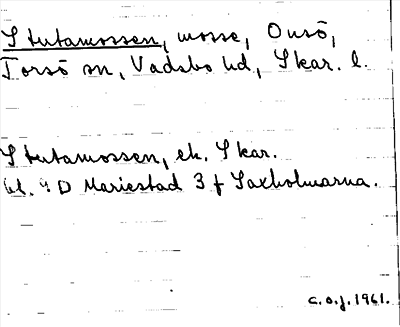 Stutamossen, mosse, Onsö,
Torsö sn, Vadsbo hd, Skar. l.
Stutamossen, ek. Skar.
bl. 9 D Mariestad 3 f Saxholmarna.
C.O.J. 1961.